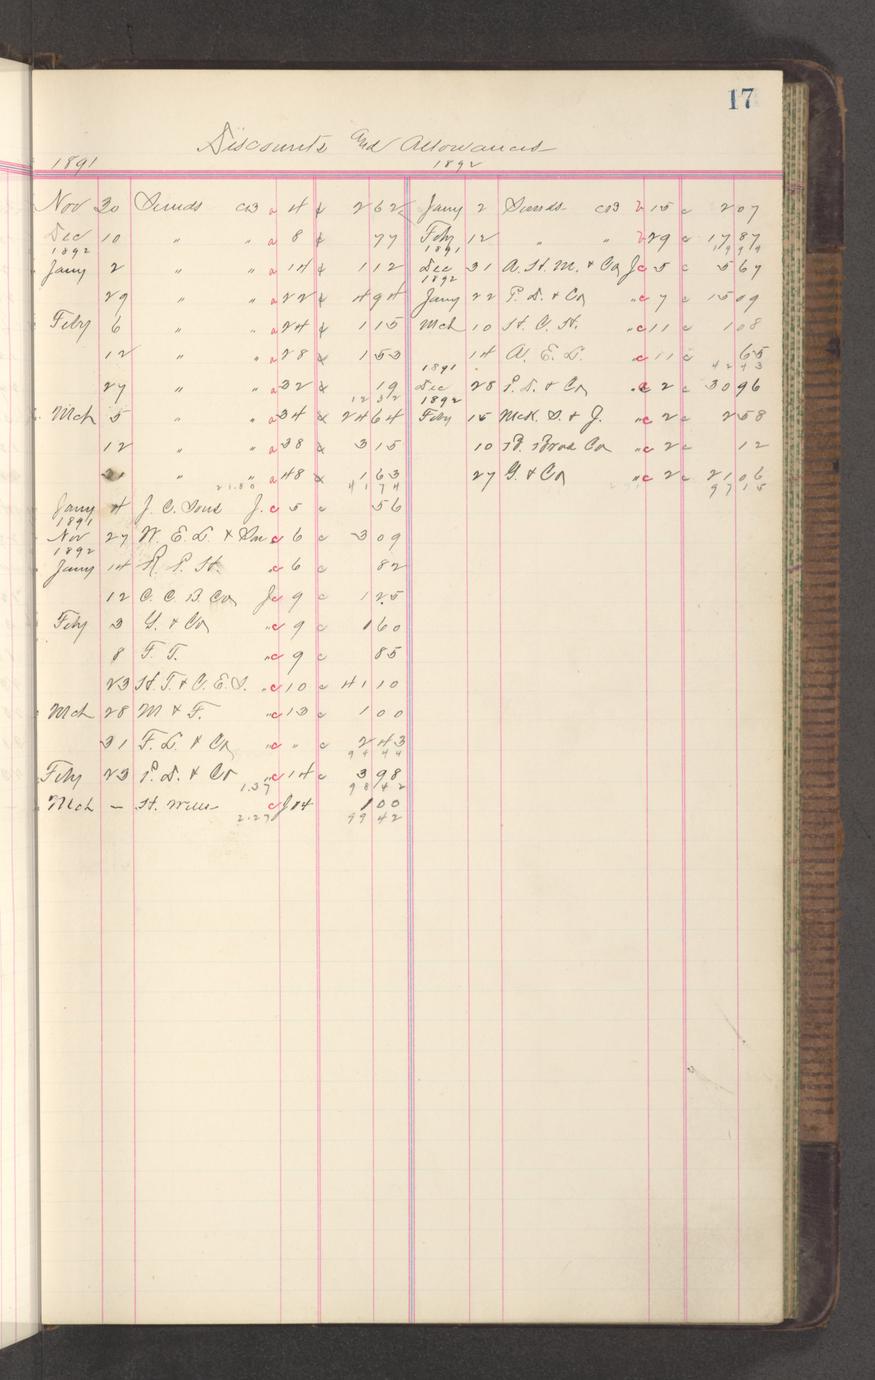 17
Discounts and Allowances
1891
Nov 30 Sunds CB a 4 2 62
Dec 10 " " a 8 77
1892
Jany 2 " " a 14 1 12
29 " " a 22 4 94
Feby 6 " " a 24 1 15
12 " " a 28 1 53
27 " " a 32 19
12 32
Mch 5 " " a 34 24 64
12 " " a 38 3 15
" " a 48 1 63
21.80 41 74
Jany 4 J. C. Sons J. c 5 c 56
1891
Nov 27 W. E. L. & Son c 6 c 3 09
1892
Jany 14 R. P. H. c 6 c 82
12 C. C. B. Co J c 9 c 1 25
Feby 3 G. & Co " c 9 c 1 60
8 F. T. " c 9 c 85
23 H. T. & C. E. S. " c 10 c 41 10
Mch 28 M & F. " c 13 c 1 00
31 F. L. & Co " c " c 2 43
94 44
Feby 23 P. D. & Co " c 14 c 3 98
1.37 98 42
Mch — c J 14 1 00
2.27 99 42
1892
Jany 2 Sunds CB b 15 c 2 07
Feby 12 " " b 29 c 17 87
1891 19 94
Dec 31 A. H. M. & Co J c 5 c 5 67
1892
Jany 22 P. D. & Co " c 7 c 15 09
Mch 10 H. C. H. " c 11 c 1 08
14 A. E. L. " c 11 c 65
1891 42 43
Dec 28 P. D. & Co " c 2 c 30 96
1892
Feby 15 McK. S. & J. " c 2 c 2 58
10 Co " c 2 c 12
27 G. & Co " c 2 c 21 06
97 15